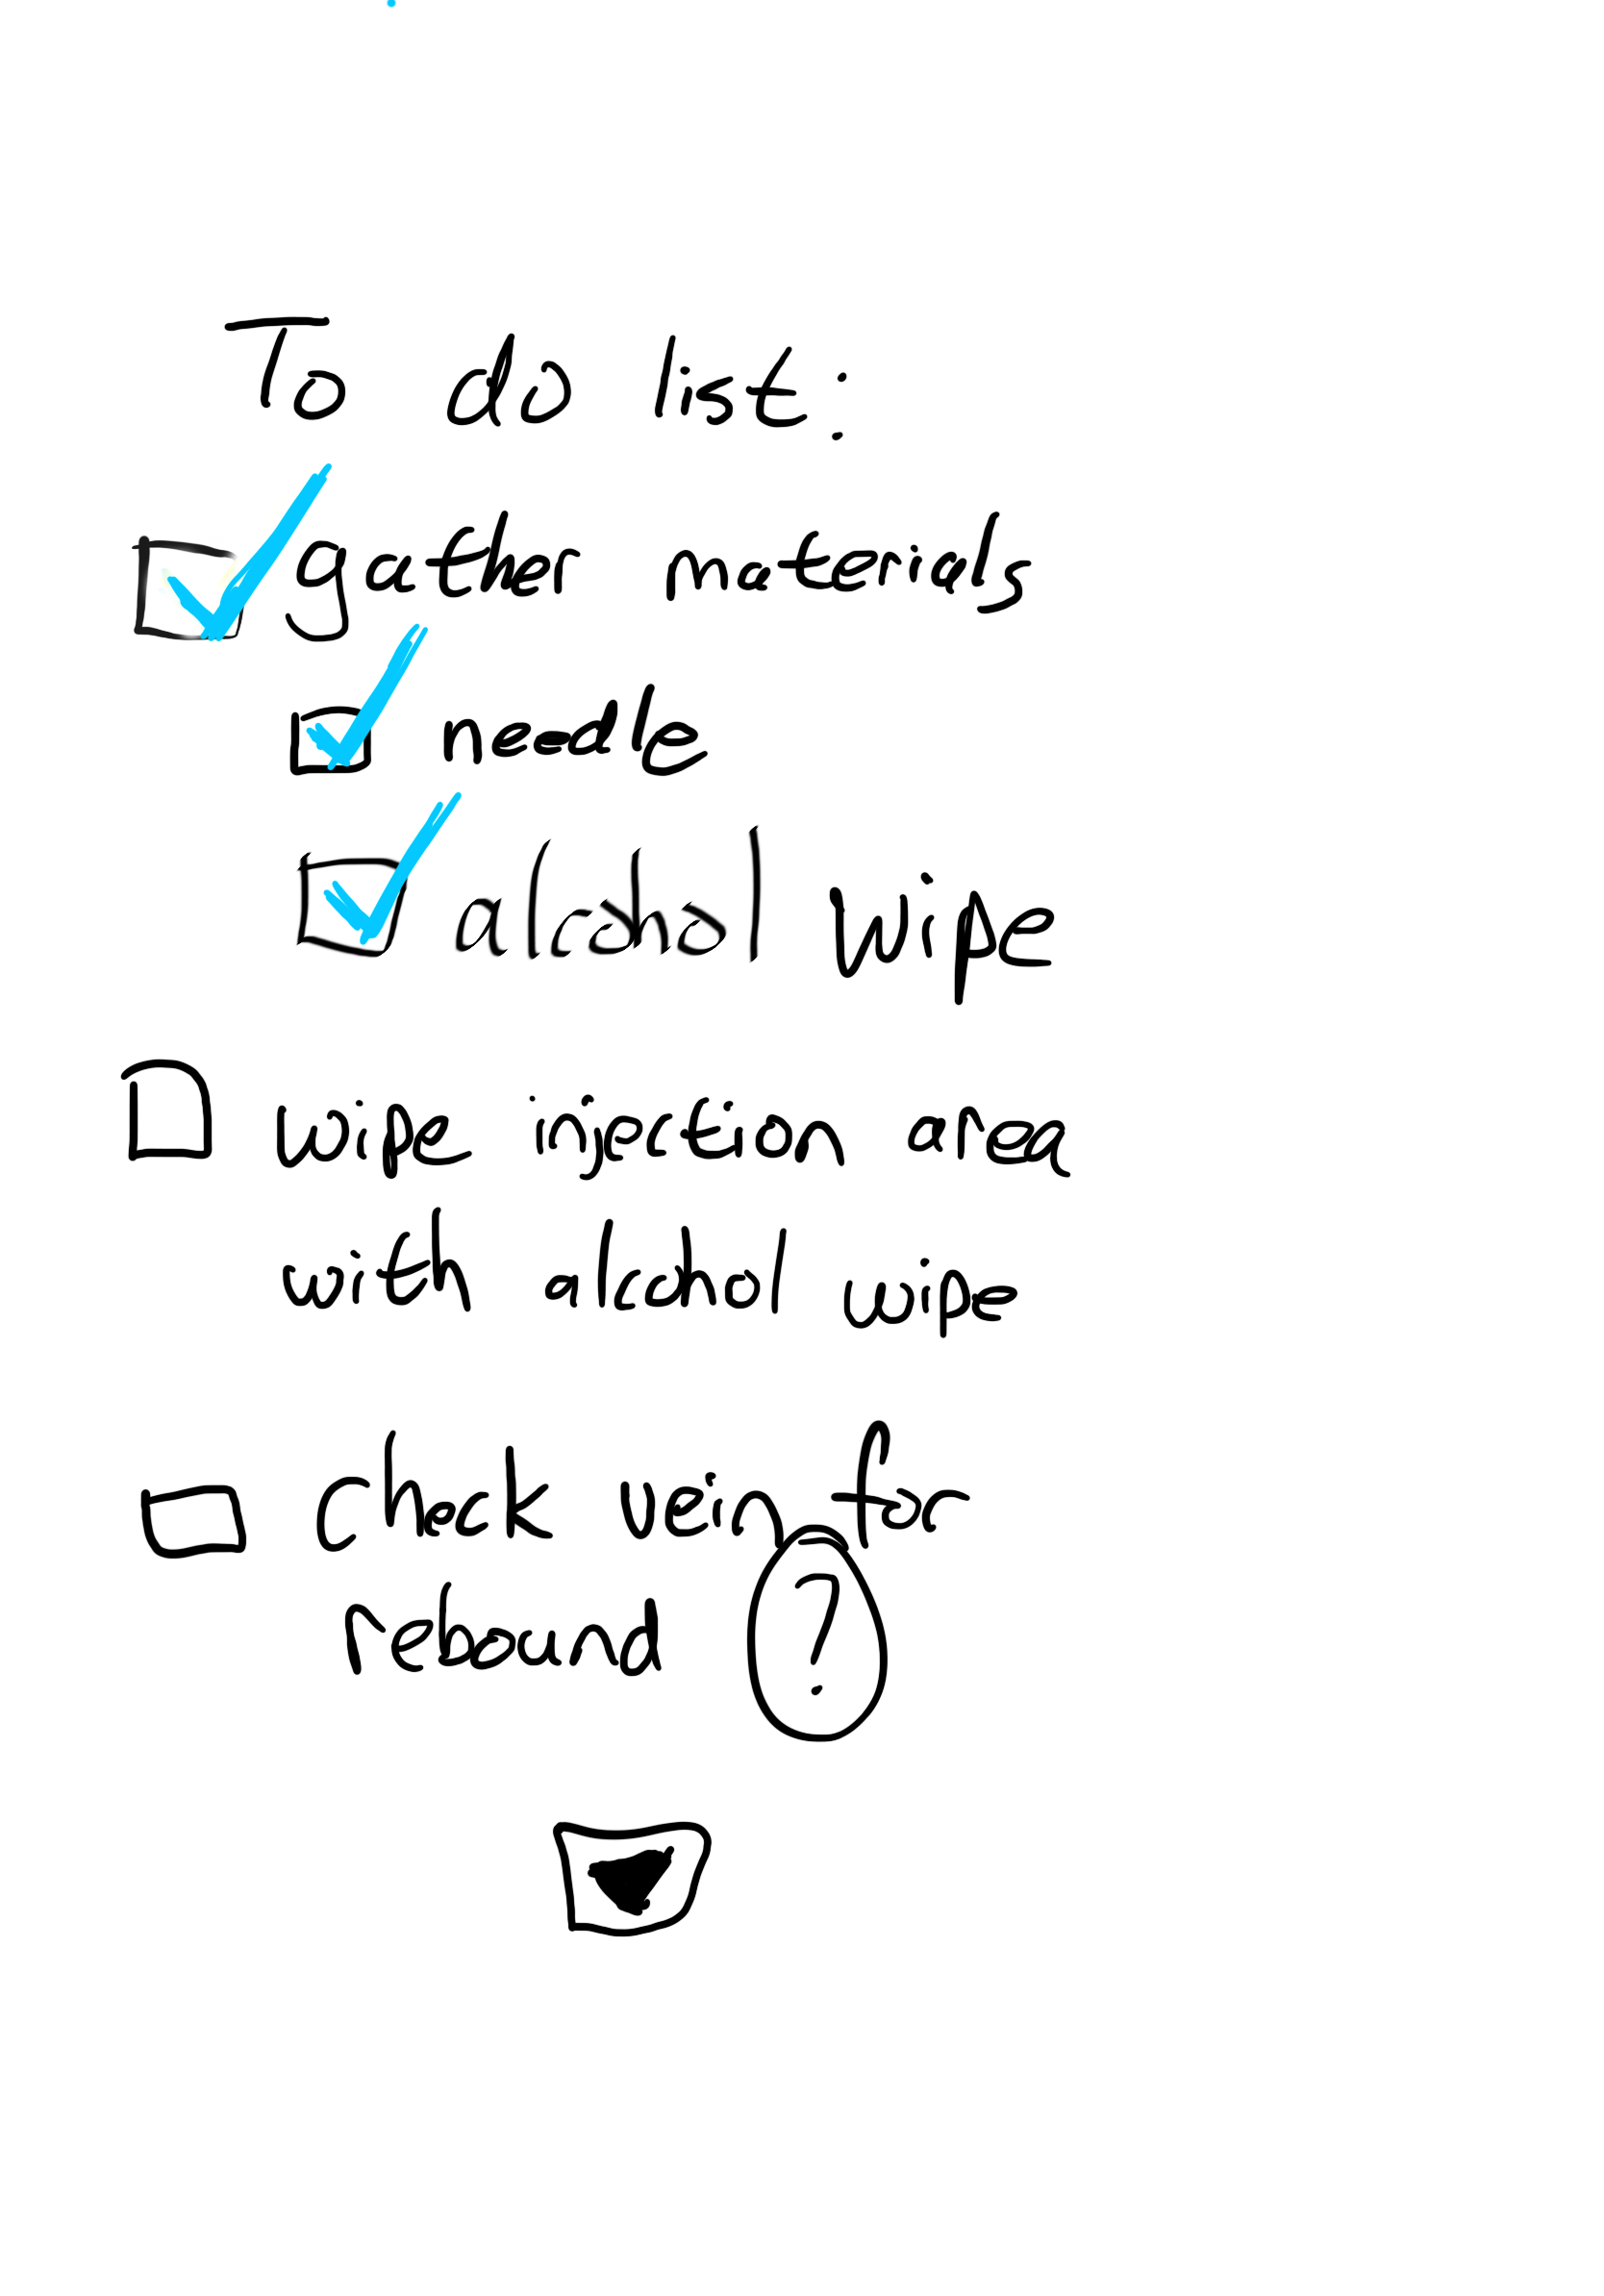 To do list:
gather materials
needle
alcohol wipe
wipe injection area
with alcohol wipe
check vein for
rebound ?